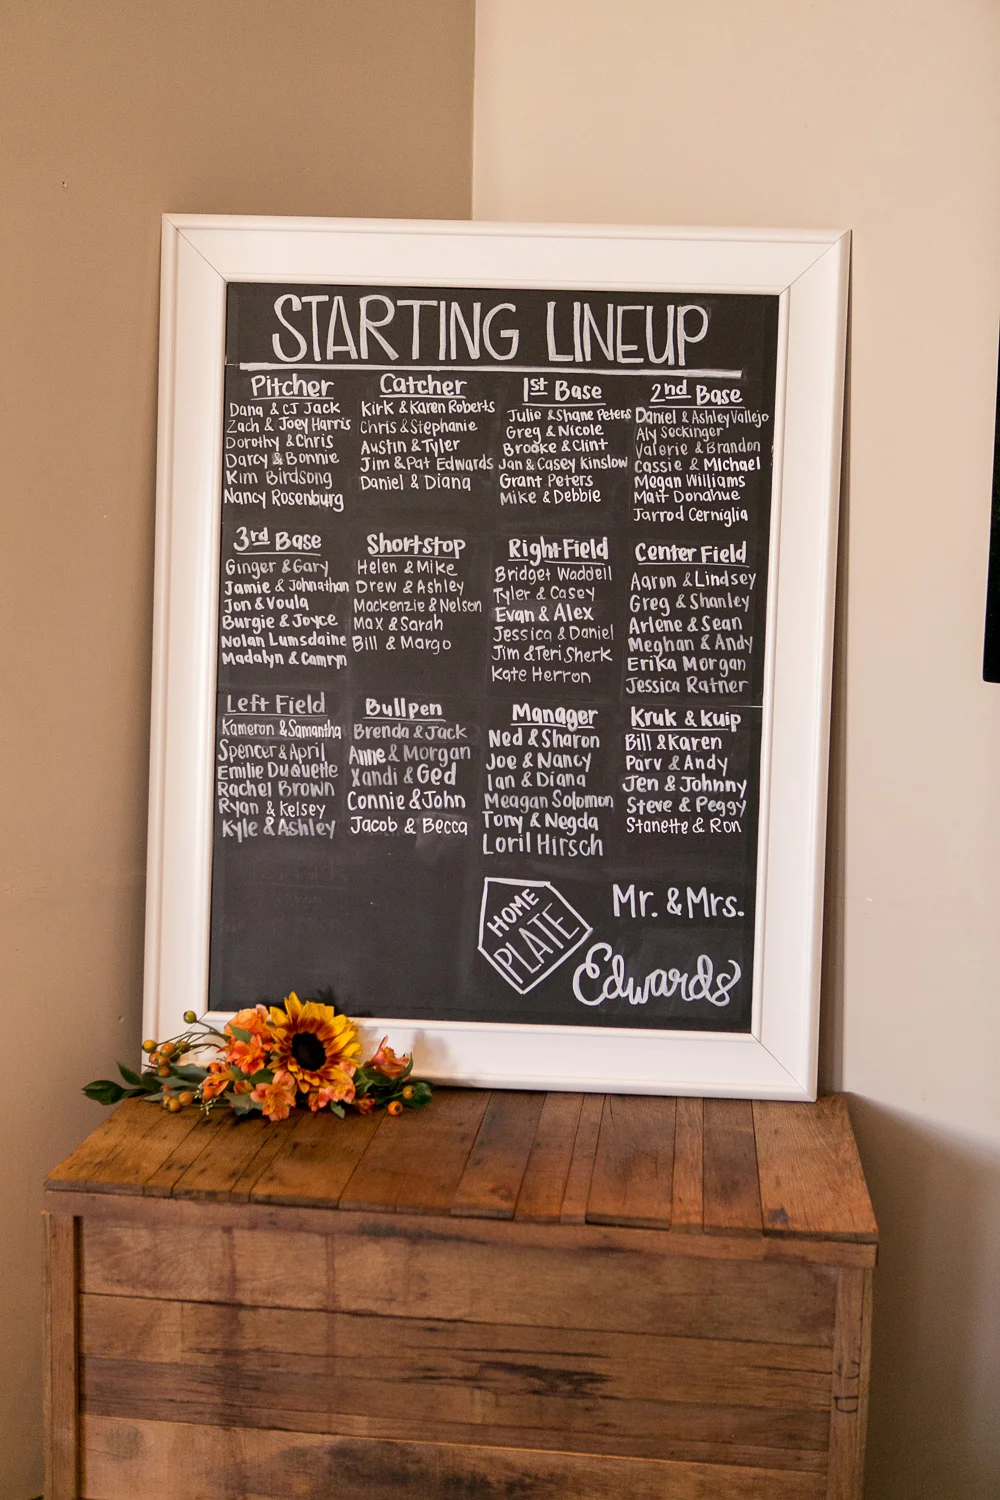 STARTING LINEUP
Pitcher
Dana & CJ Jack
Zach & Joey Harris
Dorothy & Chris
Darcy & Bonnie
Kim Birdsong
Nancy Rosenburg
Catcher
Kirk & Karen Roberts
Chris & Stephanie
Austin & Tyler
Jim & Pat Edwards
Daniel & Diana
1st Base
Julie & Shane Peters
Greg & Nicole
Brooke & Clint
Jan & Casey Kinslow
Grant Peters
Mike & Debbie
2nd Base
Daniel & Ashley Vallejo
Aly Seckinger
Valerie & Brandon
Cassie & Michael
Megan Williams
Matt Donahue
Jarrod Cerniglia
3rd Base
Ginger & Gary
Jamie & Johnathan
Jon & Voula
Burgie & Joyce
Nolan Lumsdaine
Madalyn & Camryn
Shortstop
Helen & Mike
Drew & Ashley
Mackenzie & Nelson
Max & Sarah
Bill & Margo
Right Field
Bridget Waddell
Tyler & Casey
Evan & Alex
Jessica & Daniel
Jim & Teri Sherk
Kate Herron
Center Field
Aaron & Lindsey
Greg & Shanley
Arlene & Sean
Meghan & Andy
Erika Morgan
Jessica Ratner
Left Field
Kameron & Samantha
Spencer & April
Emilie Duquette
Rachel Brown
Ryan & Kelsey
Kyle & Ashley
Bullpen
Brenda & Jack
Anne & Morgan
Xandi & Ged
Connie & John
Jacob & Becca
Manager
Ned & Sharon
Joe & Nancy
Ian & Diana
Meagan Solomon
Tony & Negda
Loril Hirsch
Kruk & Kuip
Bill & Karen
Parv & Andy
Jen & Johnny
Steve & Peggy
Stanette & Ron
HOME
PLATE
Mr. & Mrs.
Edwards